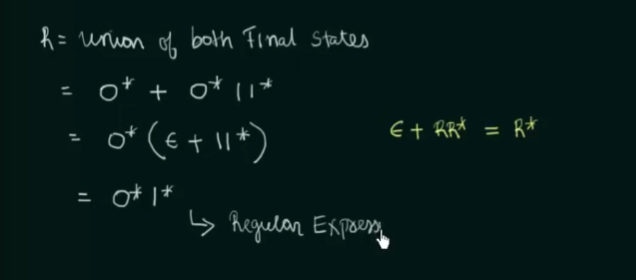 R = Union of both Final States
= 0* + 0* 11*
= 0* (ε + 11*)
ε + RR* = R*
= 0* 1*
↳ Regular Express